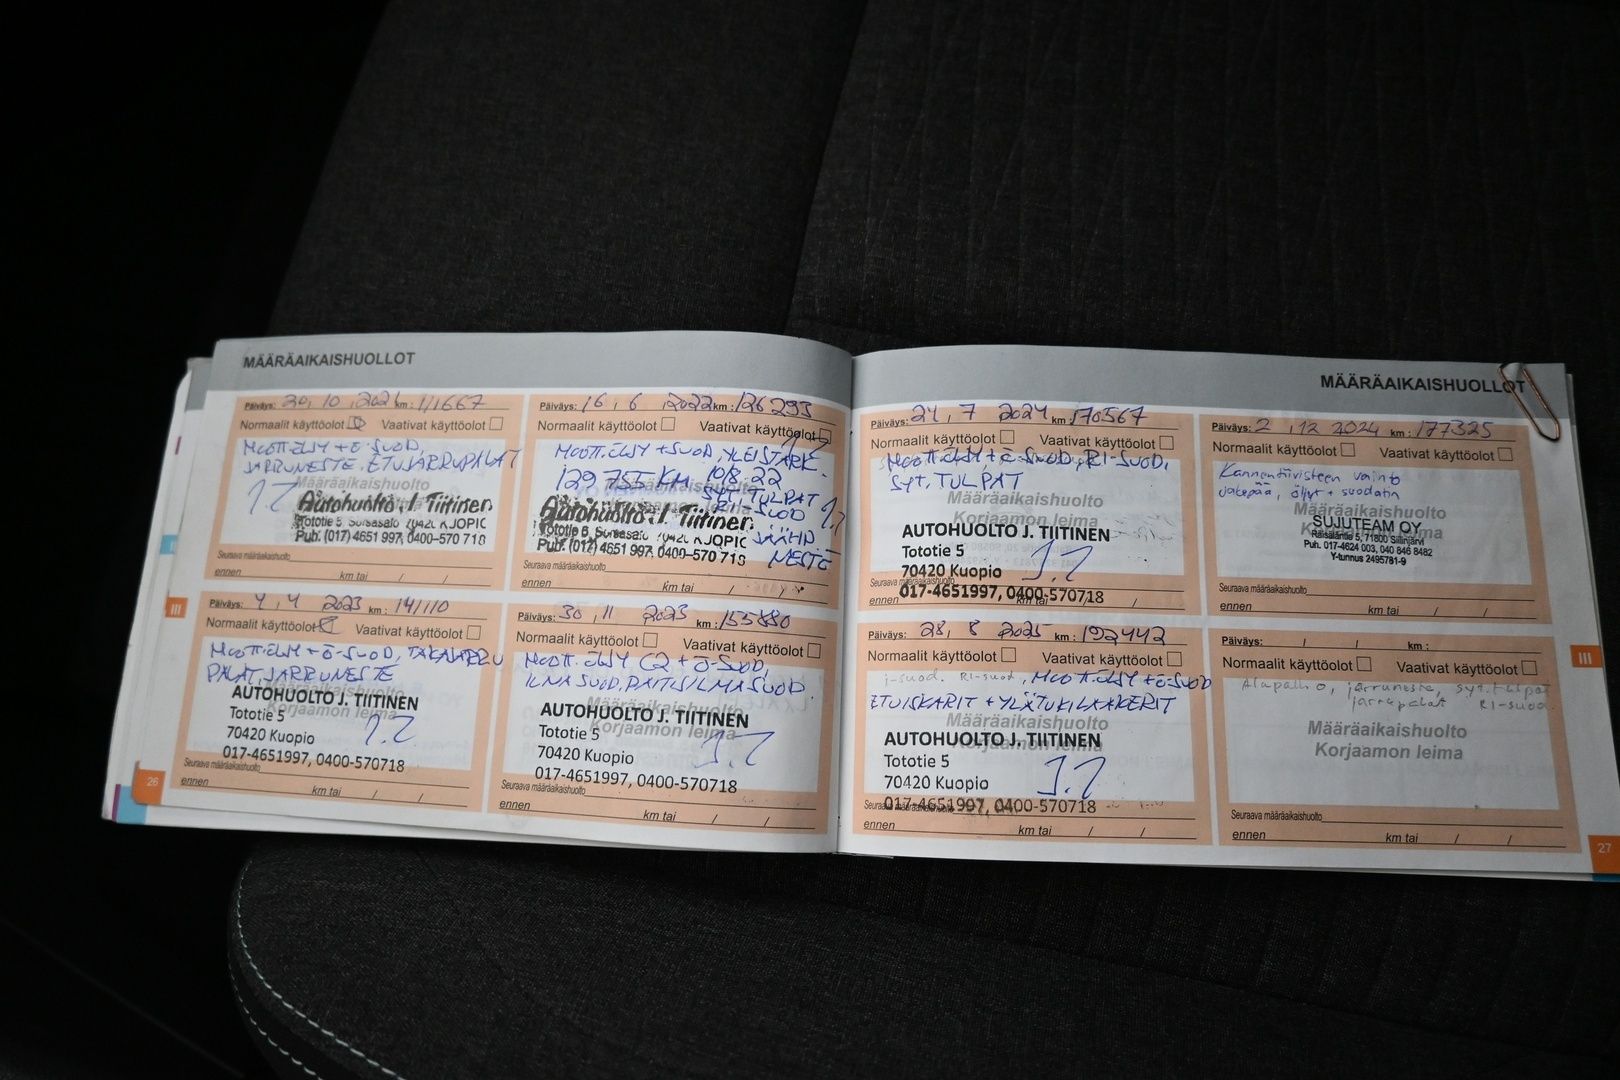 MÄÄRÄAIKAISHUOLLOT
Päiväys: 20, 10, 2021 km: 111667
Normaalit käyttöolot Vaativat käyttöolot
MOOTT.ÖLJY + Ö-SUOD,
JARRUNESTE, ETUJARRUPALAT
Määräaikaishuolto
Autohuolto J. Tiitinen
Puh. (017) 4651 997, 0400-570 718
Seuraava määräaikaishuolto
ennen km tai / /
Päiväys: 16, 6, 2022 km: 126293
Normaalit käyttöolot Vaativat käyttöolot
MOOTT.ÖLJY + SUOD, YLEISTARK.
129755 KM 10/8.22
SYT.TULPAT
RI-SUOD
Autohuolto J. Tiitinen
JÄÄHD
Puh. (017) 4651 997, 0400-570 718
NESTE
Seuraava määräaikaishuolto
ennen km tai / /
III
Päiväys: 4, 4 2023 km: 141110
Normaalit käyttöolot Vaativat käyttöolot
MOOTT.ÖLJY + Ö-SUOD, TAKAJARRU
PALAT, JARRUNESTE
Määräaikaishuolto
AUTOHUOLTO J. TIITINEN
Korjaamon leima
Tototie 5
70420 Kuopio
017-4651997, 0400-570718
Seuraava määräaikaishuolto
ennen km tai / /
26
Päiväys: 30, 11 2023 km: 155880
Normaalit käyttöolot Vaativat käyttöolot
MOOTT.ÖLJY C2 + Ö-SUOD,
ILMASUOD, RAITISILMASUOD
Määräaikaishuolto
AUTOHUOLTO J. TIITINEN
Korjaamon leima
Tototie 5
70420 Kuopio
017-4651997, 0400-570718
Seuraava määräaikaishuolto
ennen km tai / /
MÄÄRÄAIKAISHUOLLOT
Päiväys: 24, 7 2024 km: 170567
Normaalit käyttöolot Vaativat käyttöolot
MOOTT.ÖLJY + Ö-SUOD, RI-SUOD,
SYT, TULPAT
Määräaikaishuolto
Korjaamon leima
AUTOHUOLTO J. TIITINEN
Tototie 5
70420 Kuopio
Seuraava määräaikaishuolto
017-4651997, 0400-570718
ennen km tai / /
Päiväys: 2, 12 2024 km: 177325
Normaalit käyttöolot Vaativat käyttöolot
Kannentiivisteen vaihto
jakopää, öljyt + suodatin
Määräaikaishuolto
Korjaamon leima
SUJUTEAM OY
Räisäläntie 5, 71800 Siilinjärvi
Puh. 017-4624 003, 040 846 8482
Y-tunnus 2495781-9
Seuraava määräaikaishuolto
ennen km tai / /
Päiväys: 28, 8 2025 km: 192442
Normaalit käyttöolot Vaativat käyttöolot
j-suod. RI-suod, MOOTT.ÖLJY + Ö-SUOD
ETUISKARIT + YLÄTUKILAAKERIT
Määräaikaishuolto
Korjaamon leima
AUTOHUOLTO J. TIITINEN
Tototie 5
70420 Kuopio
017-4651997, 0400-570718
Seuraava määräaikaishuolto
ennen km tai / /
Päiväys: / / km:
Normaalit käyttöolot Vaativat käyttöolot
Alapallo, jarruneste, syt.tulpat
jarrupalat RI-suod.
Määräaikaishuolto
Korjaamon leima
Seuraava määräaikaishuolto
ennen km tai / /
III
27